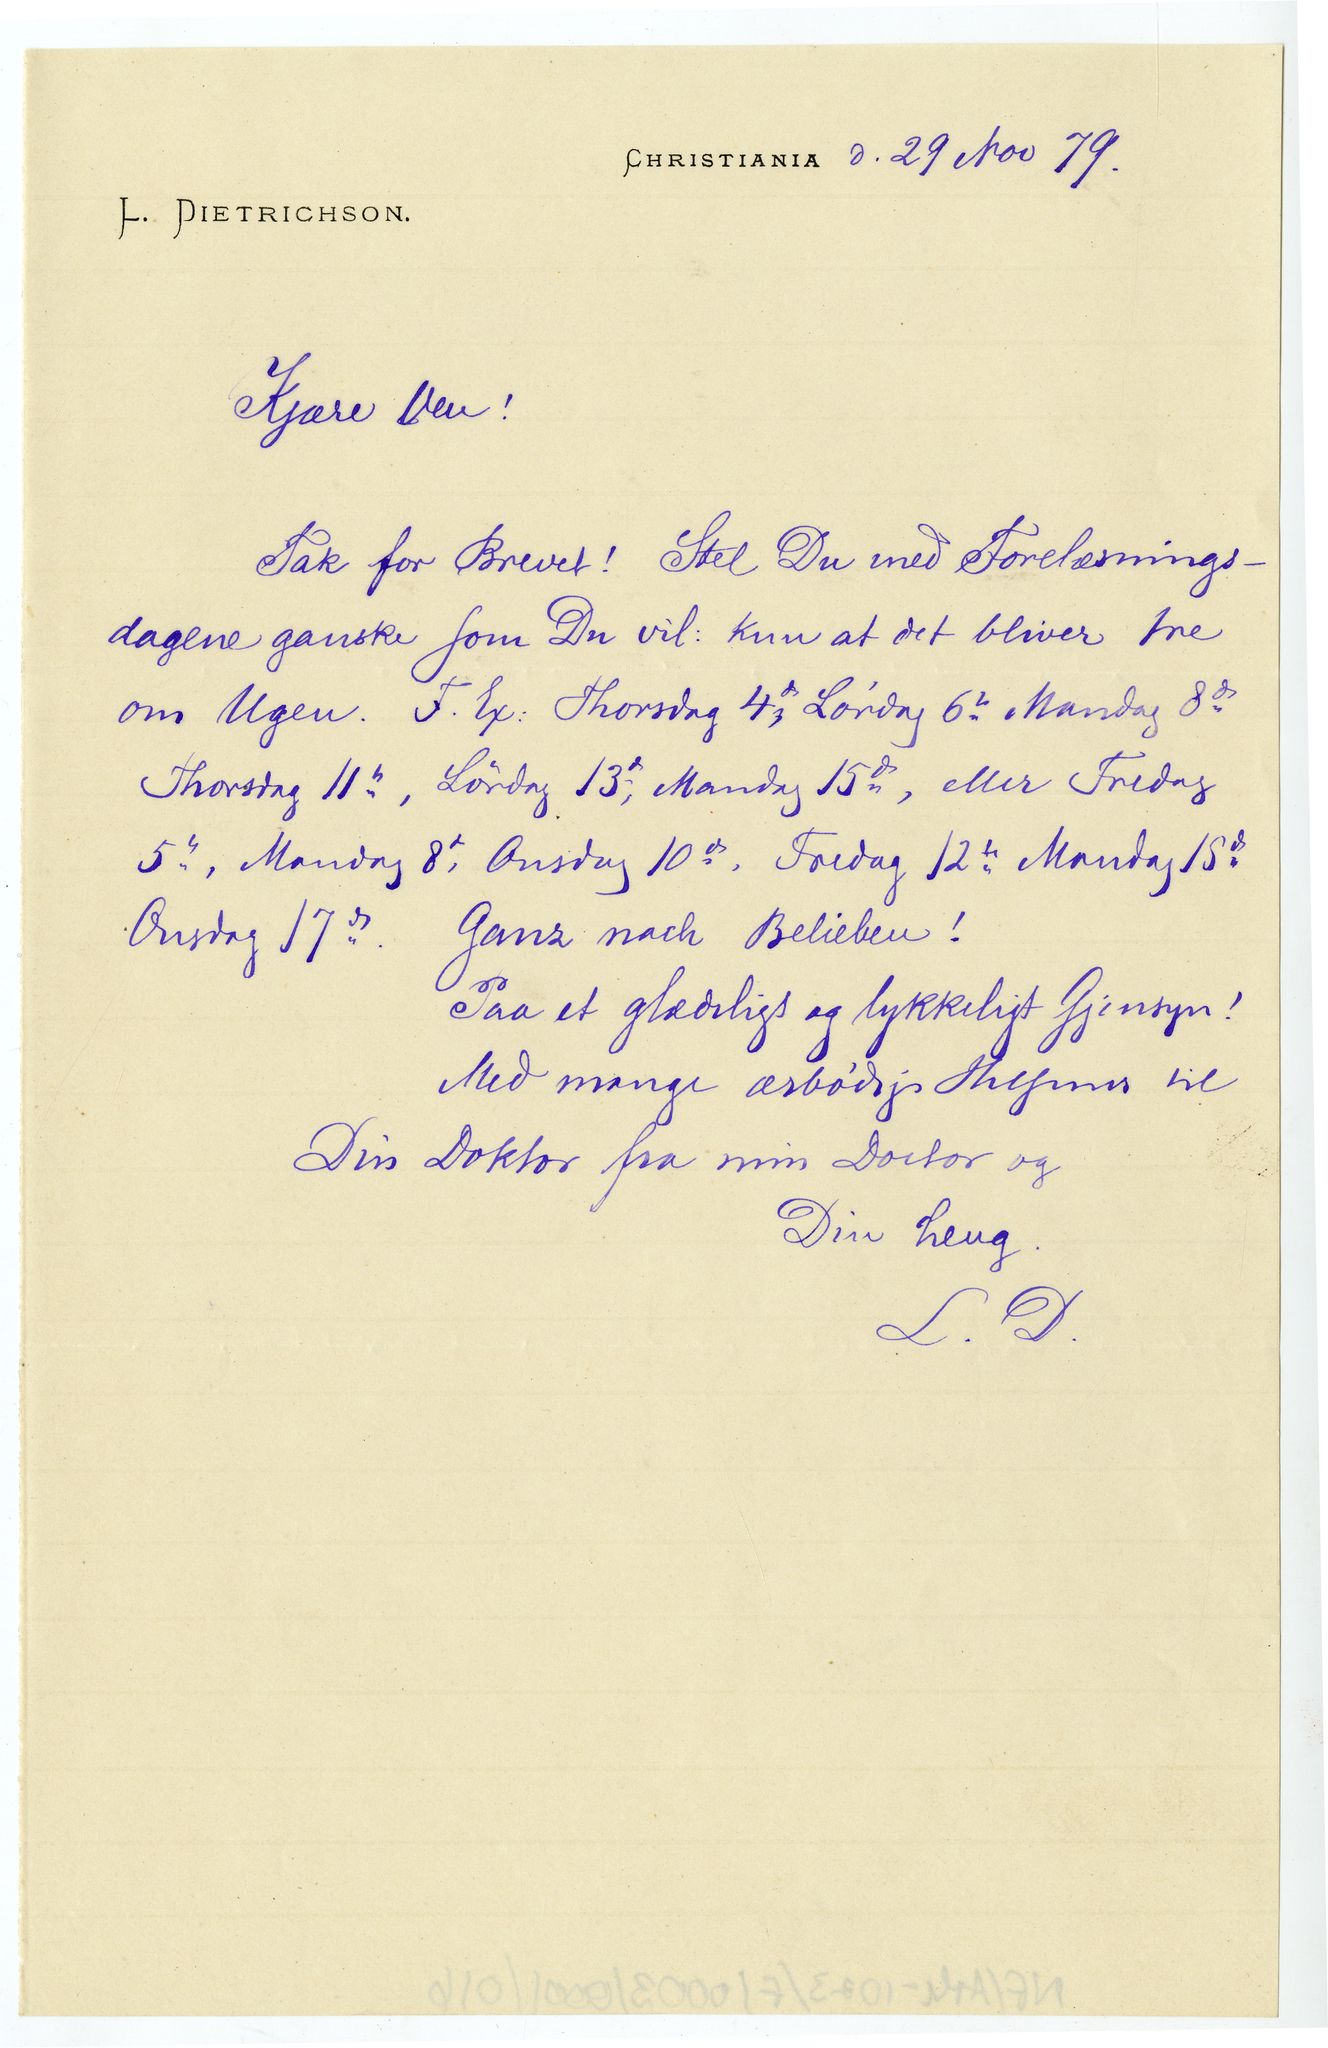 CHRISTIANIA d. 29 Nov 79.
L. DIETRICHSON.
Kjære Ven!
Tak for Brevet! Stel Du med Forelæsnings-
dagene ganske som Du vil: kun at det bliver tre
om Ugen. F. Ex: Thorsdag 4de, Lördag 6te Mandag 8de
Thorsdag 11te, Lördag 13de, Mandag 15de, eller Fredag
5te, Mandag 8de, Onsdag 10de, Fredag 12te Mandag 15de
Onsdag 17de. Ganz nach Belieben!
Paa et glædeligt og lykkeligt Gjensyn!
Med mange ærbödige Hilsener til
Din Doktor fra min Doctor og
Din heng.
L. D.